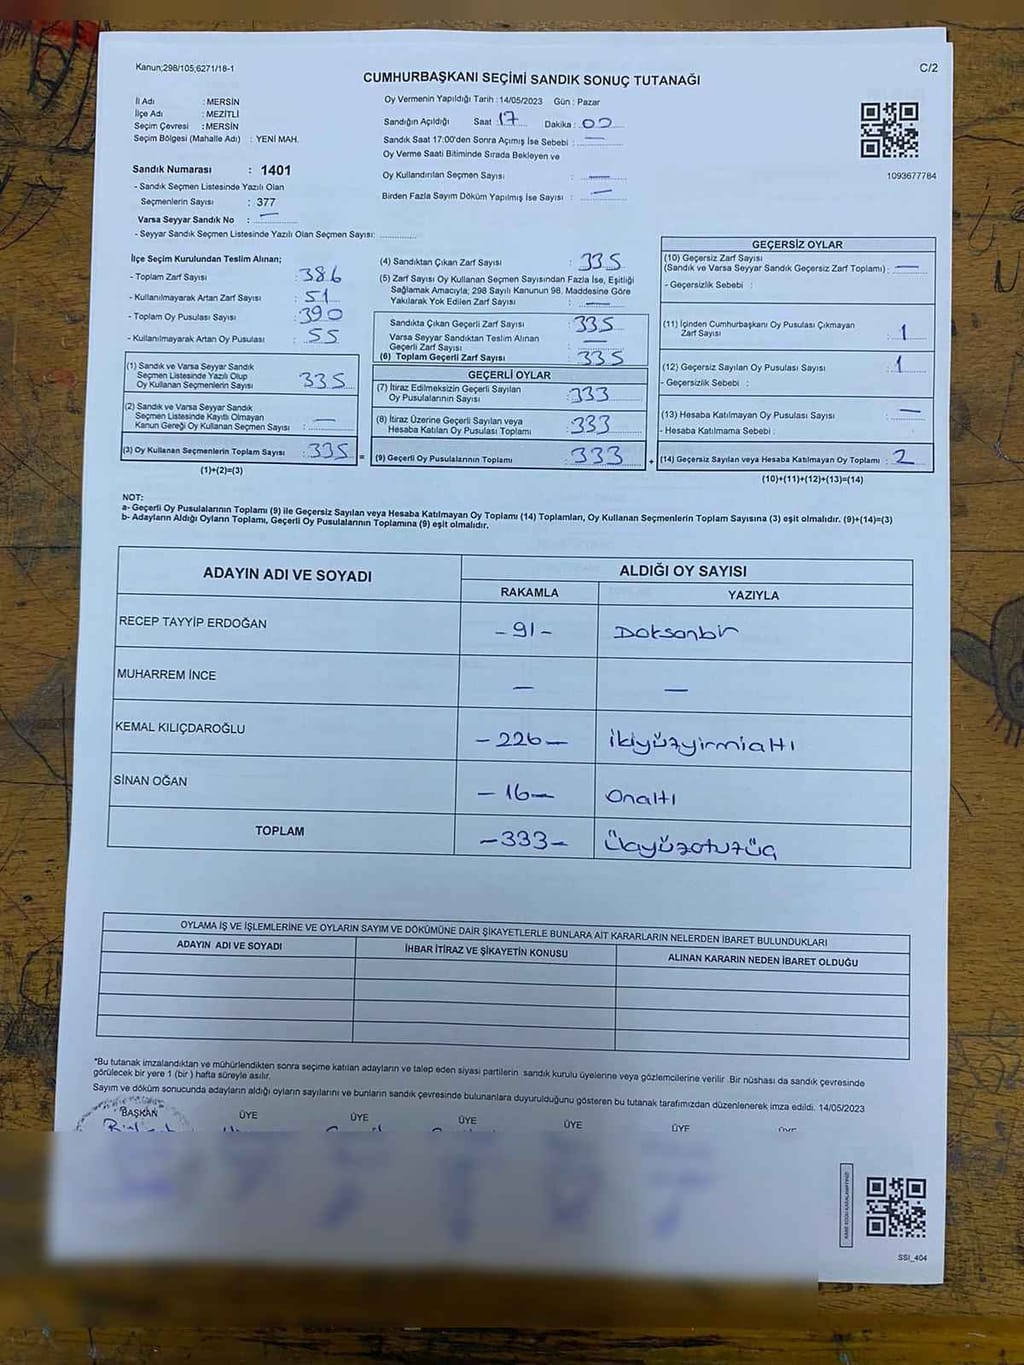 Kanun;298/105;6271/18-1
C/2
CUMHURBAŞKANI SEÇİMİ SANDIK SONUÇ TUTANAĞI
İl Adı : MERSİN
İlçe Adı : MEZİTLİ
Seçim Çevresi : MERSİN
Seçim Bölgesi (Mahalle Adı) : YENİ MAH.
Oy Vermenin Yapıldığı Tarih : 14/05/2023 Gün : Pazar
Sandığın Açıldığı Saat 17 Dakika : 00
Sandık Saat 17:00'den Sonra Açımış İse Sebebi : —
Oy Verme Saati Bitiminde Sırada Bekleyen ve
Oy Kullandırılan Seçmen Sayısı : —
Birden Fazla Sayım Döküm Yapılmış İse Sayısı : —
1093677784
Sandık Numarası : 1401
- Sandık Seçmen Listesinde Yazılı Olan
Seçmenlerin Sayısı : 377
Varsa Seyyar Sandık No : —
- Seyyar Sandık Seçmen Listesinde Yazılı Olan Seçmen Sayısı:
İlçe Seçim Kurulundan Teslim Alınan;
- Toplam Zarf Sayısı : 386
- Kullanılmayarak Artan Zarf Sayısı : 51
- Toplam Oy Pusulası Sayısı : 390
- Kullanılmayarak Artan Oy Pusulası : 55
(1) Sandık ve Varsa Seyyar Sandık
Seçmen Listesinde Yazılı Olup
Oy Kullanan Seçmenlerin Sayısı : 335
(2) Sandık ve Varsa Seyyar Sandık
Seçmen Listesinde Kayıtlı Olmayan
Kanun Gereği Oy Kullanan Seçmen Sayısı : —
(3) Oy Kullanan Seçmenlerin Toplam Sayısı : 335 =
(1)+(2)=(3)
(4) Sandıktan Çıkan Zarf Sayısı : 335
(5) Zarf Sayısı Oy Kullanan Seçmen Sayısından Fazla İse, Eşitliği
Sağlamak Amacıyla; 298 Sayılı Kanunun 98. Maddesine Göre
Yakılarak Yok Edilen Zarf Sayısı : —
Sandıkta Çıkan Geçerli Zarf Sayısı : 335
Varsa Seyyar Sandıktan Teslim Alınan
Geçerli Zarf Sayısı : —
(6) Toplam Geçerli Zarf Sayısı : 335
GEÇERLİ OYLAR
(7) İtiraz Edilmeksizin Geçerli Sayılan
Oy Pusulalarının Sayısı : 333
(8) İtiraz Üzerine Geçerli Sayılan veya
Hesaba Katılan Oy Pusulası Toplamı : 333
(9) Geçerli Oy Pusulalarının Toplamı : 333 +
GEÇERSİZ OYLAR
(10) Geçersiz Zarf Sayısı
(Sandık ve Varsa Seyyar Sandık Geçersiz Zarf Toplamı) : —
- Geçersizlik Sebebi :
(11) İçinden Cumhurbaşkanı Oy Pusulası Çıkmayan
Zarf Sayısı : 1
(12) Geçersiz Sayılan Oy Pusulası Sayısı : 1
- Geçersizlik Sebebi :
(13) Hesaba Katılmayan Oy Pusulası Sayısı : —
- Hesaba Katılmama Sebebi :
(14) Geçersiz Sayılan veya Hesaba Katılmayan Oy Toplamı : 2
(10)+(11)+(12)+(13)=(14)
NOT:
a- Geçerli Oy Pusulalarının Toplamı (9) ile Geçersiz Sayılan veya Hesaba Katılmayan Oy Toplamı (14) Toplamları, Oy Kullanan Seçmenlerin Toplam Sayısına (3) eşit olmalıdır. (9)+(14)=(3)
b- Adayların Aldığı Oyların Toplamı, Geçerli Oy Pusulalarının Toplamına (9) eşit olmalıdır.
ADAYIN ADI VE SOYADI
ALDIĞI OY SAYISI
RAKAMLA YAZIYLA
RECEP TAYYİP ERDOĞAN -91- Doksanbir
MUHARREM İNCE — —
KEMAL KILIÇDAROĞLU -226- ikiyüzyirmialtı
SİNAN OĞAN -16- Onaltı
TOPLAM -333- Üçyüzotuzüç
OYLAMA İŞ VE İŞLEMLERİNE VE OYLARIN SAYIM VE DÖKÜMÜNE DAİR ŞİKAYETLERLE BUNLARA AİT KARARLARIN NELERDEN İBARET BULUNDUKLARI
ADAYIN ADI VE SOYADI İHBAR İTİRAZ VE ŞİKAYETİN KONUSU ALINAN KARARIN NEDEN İBARET OLDUĞU
*Bu tutanak imzalandıktan ve mühürlendikten sonra seçime katılan adayların ve talep eden siyasi partilerin sandık kurulu üyelerine veya gözlemcilerine verilir. Bir nüshası da sandık çevresinde
görülecek bir yere 1 (bir) hafta süreyle asılır.
Sayım ve döküm sonucunda adayların aldığı oyların sayılarını ve bunların sandık çevresinde bulunanlara duyurulduğunu gösteren bu tutanak tarafımızdan düzenlenerek imza edildi. 14/05/2023
BAŞKAN ÜYE ÜYE ÜYE ÜYE ÜYE
SSI_404